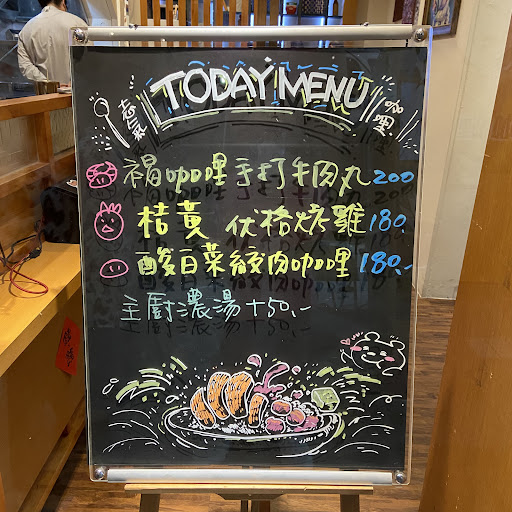 TODAY MENU
志氣
咖哩
褐咖哩手打牛肉丸200
桔黃 优格烤雞180.
酸白菜絞肉咖哩180.-
主廚濃湯+50.-